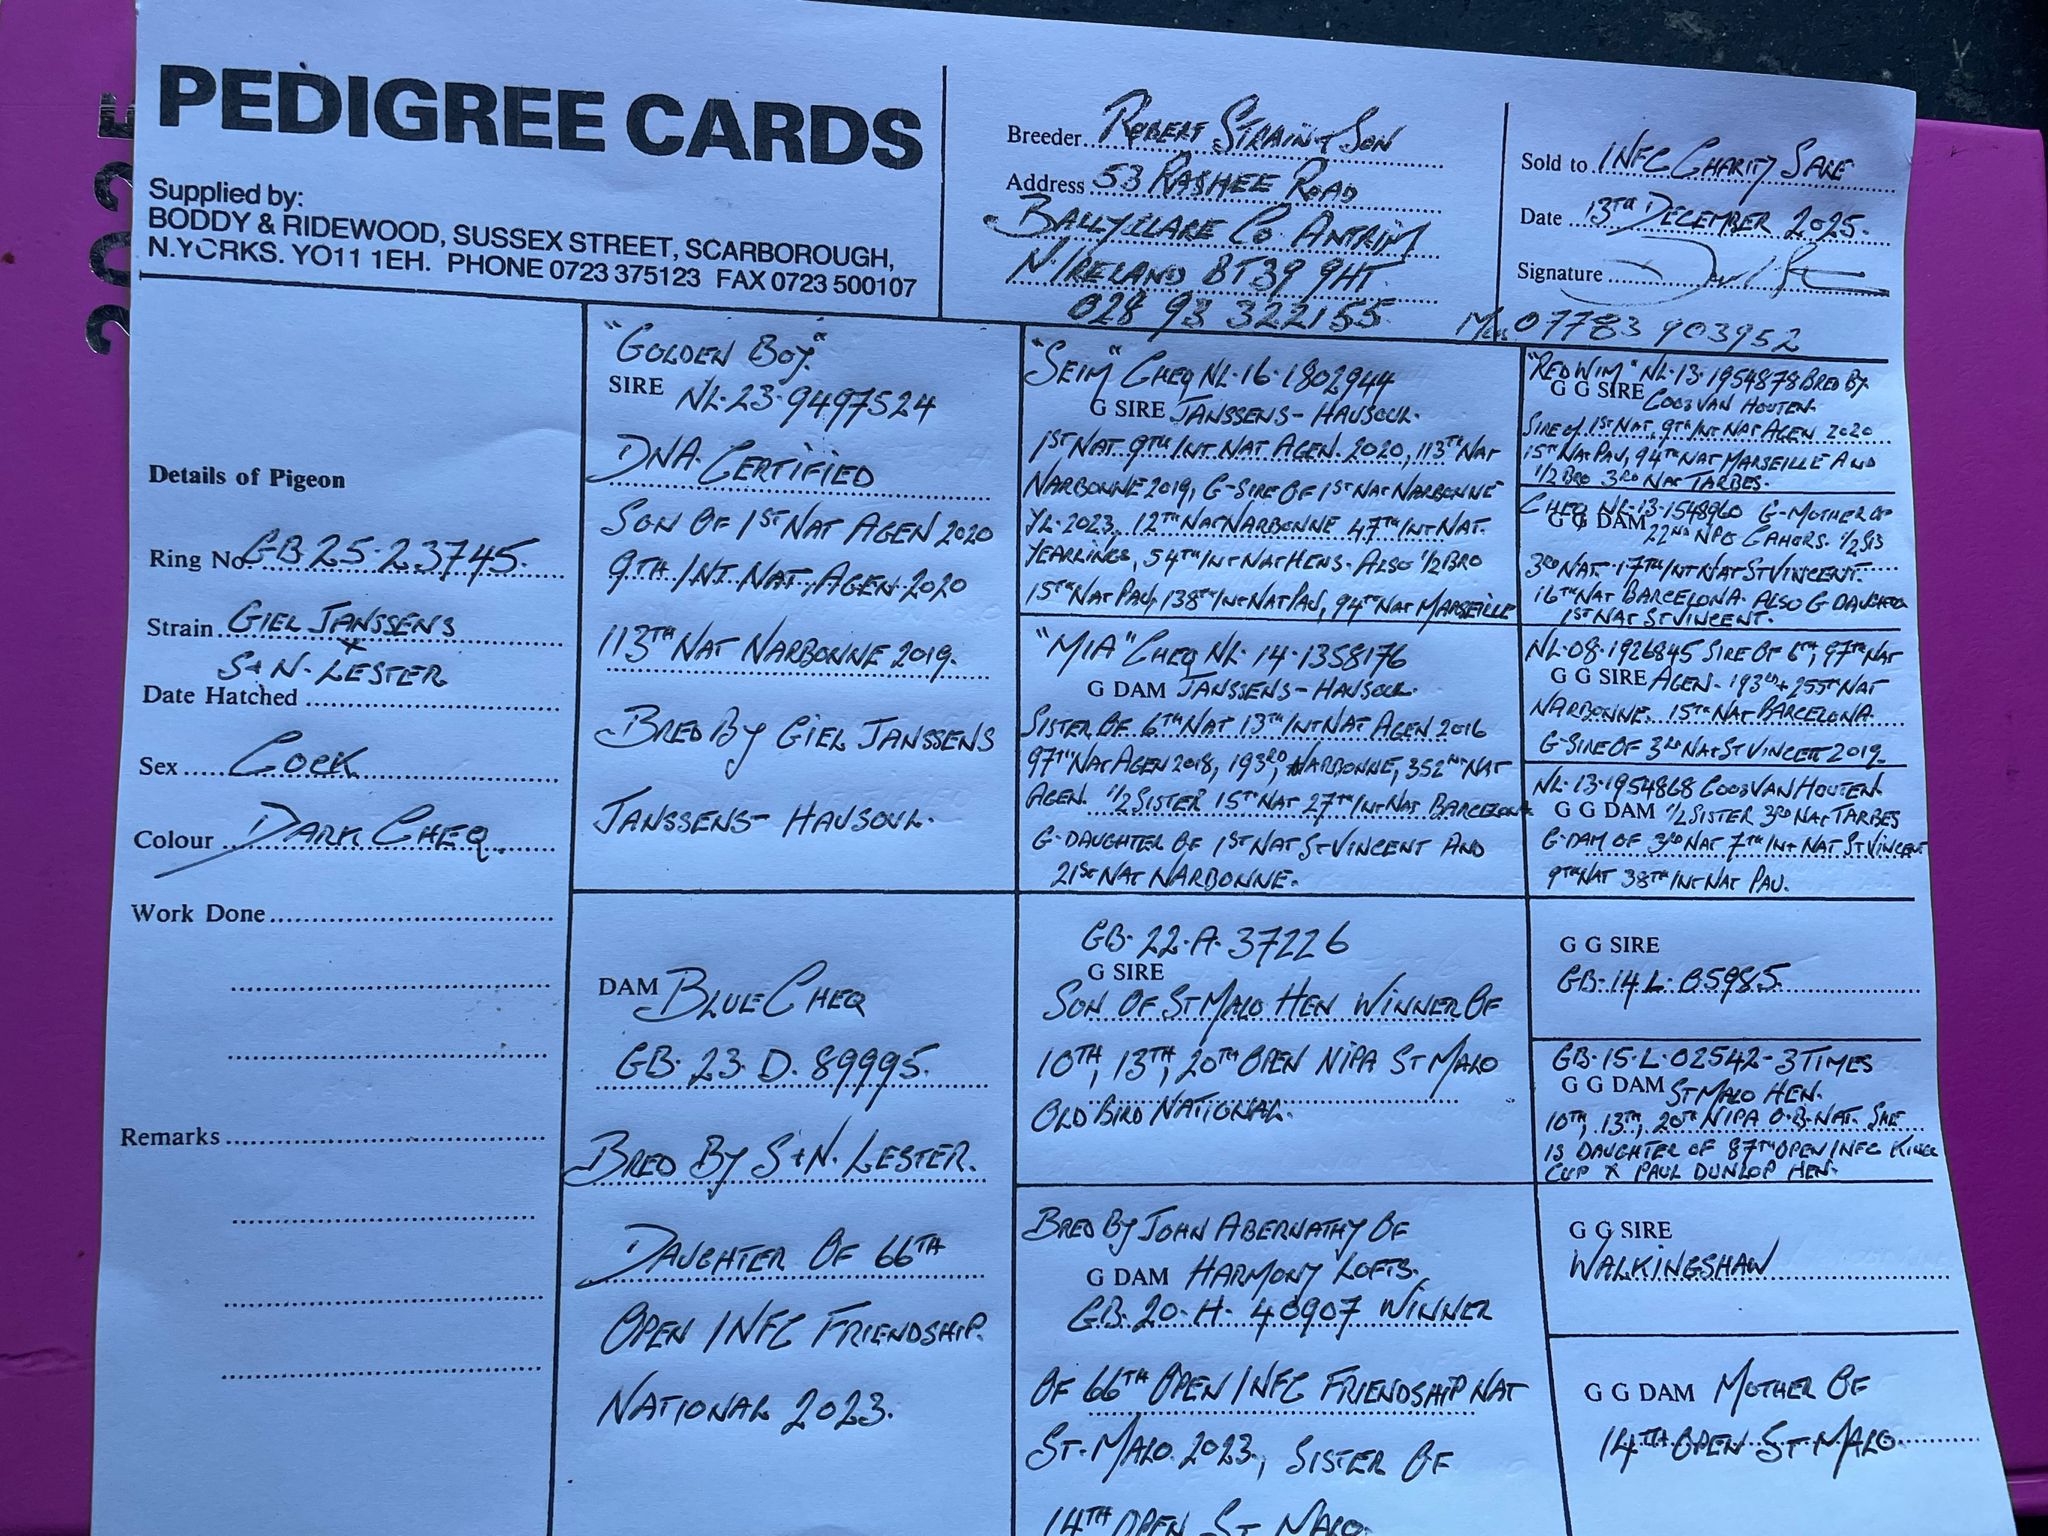 PEDIGREE CARDS
Supplied by:
BODDY & RIDEWOOD, SUSSEX STREET, SCARBOROUGH,
N.YORKS. YO11 1EH. PHONE 0723 375123 FAX 0723 500107
Breeder ROBERT STRAIN + SON
Address 53 RASHEE ROAD
BALLYCLARE CO ANTRIM
N/IRELAND BT39 9HT
028 93 322155
Sold to INFC CHARITY SALE
Date 13TH DECEMBER 2025.
Signature
07783 903952
Details of Pigeon
Ring No GB.25.23745.
Strain GIEL JANSSENS
x
S+N. LESTER
Date Hatched
Sex COCK
Colour DARK CHEQ.
Work Done
Remarks
"GOLDEN BOY."
SIRE NL.23.9497524
DNA. CERTIFIED
SON OF 1ST NAT AGEN 2020
9TH INT. NAT, AGEN.2020
113TH NAT NARBONNE 2019.
BRED BY GIEL JANSSENS
JANSSENS- HAUSOUL.
DAM BLUE CHEQ
GB. 23. D. 89995.
BRED BY S+N. LESTER.
DAUGHTER OF 66TH
OPEN INFC FRIENDSHIP.
NATIONAL 2023.
"SEIM" CHEQ NL.16.1802944
G SIRE JANSSENS-HAUSOUL.
1ST NAT. 9TH INT NAT AGEN. 2020, 113TH NAT
NARBONNE 2019, G-SIRE OF 1ST NAT NARBONNE
YL.2023. 12TH NAT NARBONNE 47TH INT NAT.
YEARLINGS, 54TH INT NAT HENS. ALSO 1/2 BRO
15TH NAT PAU, 138TH INT NAT PAU, 94TH NAT MARSEILLE
"MIA" CHEQ NL.14.1358176
G DAM JANSSENS-HAUSOUL.
SISTER OF 6TH NAT 13TH INT NAT AGEN 2016
97TH NAT AGEN 2018, 193RD, NARBONNE, 352ND NAT
AGEN. 1/2 SISTER 15TH NAT 27TH INT NAT BARCELONA
G-DAUGHTER OF 1ST NAT ST VINCENT AND
21ST NAT NARBONNE.
GB.22.A.37226
G SIRE
SON OF ST MALO HEN WINNER OF
10TH, 13TH, 20TH OPEN NIPA ST MALO
OLD BIRD NATIONAL.
BRED BY JOHN ABERNATHY OF
G DAM HARMONY LOFTS.
GB.20.H. 40907 WINNER
OF 66TH OPEN INFC FRIENDSHIP NAT
ST. MALO. 2023, SISTER OF
14TH OPEN ST MALO.
"RED WIM" NL.13.1954878 BRED BY
G G SIRE COOS VAN HOUTEN.
SIRE of 1ST NAT, 9TH INT NAT AGEN 2020
15TH NAT PAU, 94TH NAT MARSEILLE AND
1/2 BRO 3RD NAT TARBES.
CHEQ NL.13.1548960 G-MOTHER OF
G G DAM 22ND NPO CAHORS. 1/2 SIS
3RD NAT. 17TH INT NAT ST VINCENT.
16TH NAT BARCELONA. ALSO G DAUGHTER
1ST NAT ST VINCENT.
NL.08.1926845 SIRE OF 6TH, 97TH NAT
G G SIRE AGEN. 193RD + 255TH NAT
NARBONNE. 15TH NAT BARCELONA.
G-SIRE OF 3RD NAT ST VINCETT 2019.
NL.13.1954868 COOS VAN HOUTEN.
G G DAM 1/2 SISTER 3RD NAT TARBES
G-DAM OF 3RD NAT 7TH INT NAT ST VINCENT
9TH NAT 38TH INT NAT PAU.
G G SIRE
GB.14.L.05985.
GB.15.L.02542-3 TIMES
G G DAM ST MALO HEN.
10TH, 13TH, 20TH NIPA O.B. NAT. SHE
IS DAUGHTER OF 87TH OPEN INFC KINGS
CUP X PAUL DUNLOP HEN.
G G SIRE
WALKINGSHAW
G G DAM MOTHER OF
14TH OPEN ST MALO.